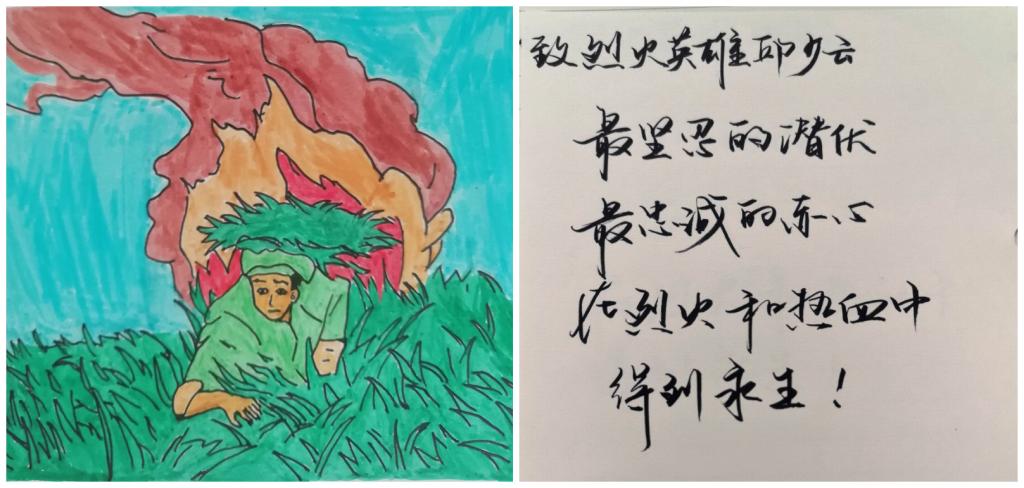 致烈火英雄邱少云
最坚忍的潜伏
最忠诚的赤心
在烈火和热血中
得到永生！